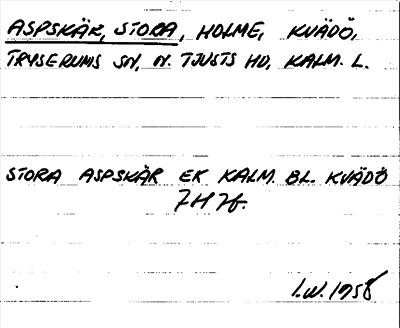 ASPSKÄR, STORA, HOLME, KVÄDÖ,
TRYSERUMS SN, N. TJUSTS HD, KALM. L.
STORA ASPSKÄR EK KALM. BL. KVÄDÖ
7H 7f.
I.W. 1958